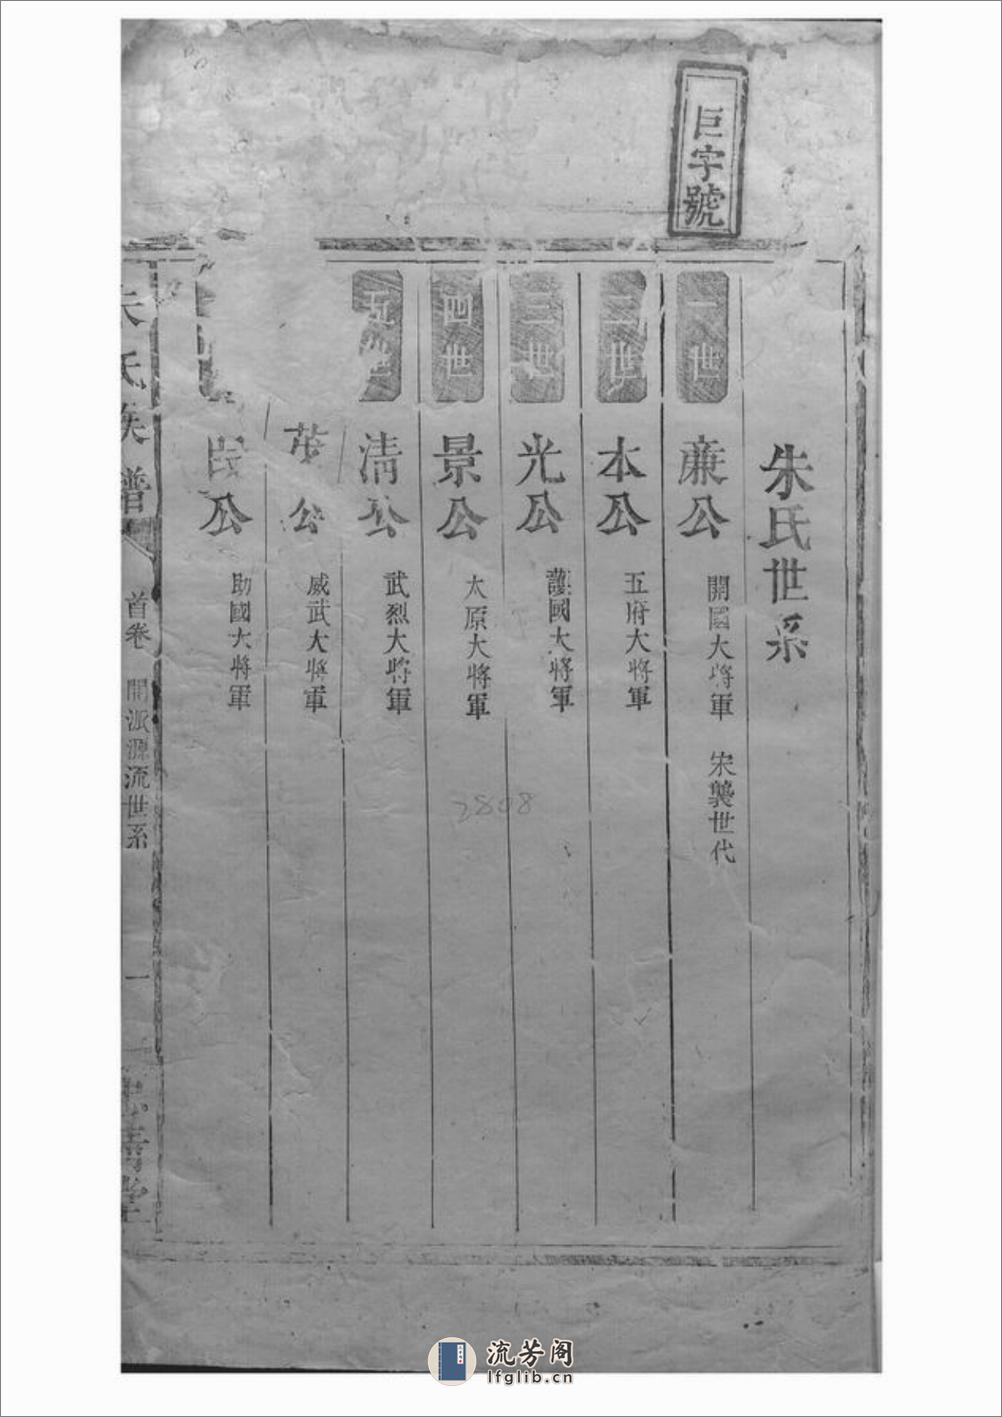 巨字號
朱氏世系
一世
廉公 開國大將軍 宋襲世代
二世
本公 五府大將軍
三世
光公 護國大將軍
四世
景公 太原大將軍
五世
清公 武烈大將軍
公 威武大將軍
公 助國大將軍
朱氏族譜 首卷 開派源流世系 一 堂
2808
流芳阁
lfglib.cn